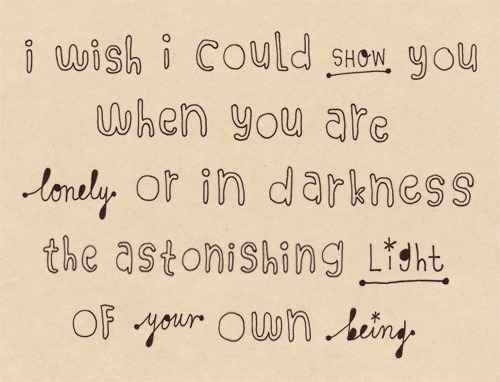 i wish i could SHOW you
when you are
lonely or in darkness
the astonishing Light
OF your own being